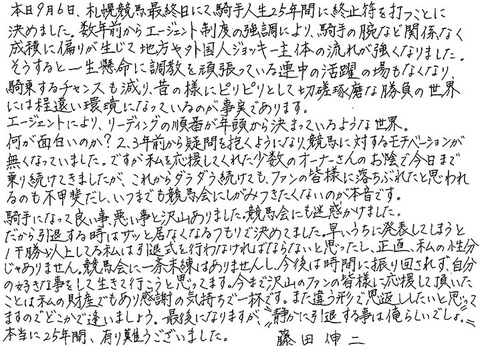 本日9月6日、札幌競馬最終日にて騎手人生25年間に終止符を打つことに
決めました。数年前からエージェント制度の強調により、騎手の腕など関係なく
成積に偏りが生じて地方や外国人ジョッキー主体の流れが強くなりました。
そうすると一生懸命に調教を頑張っている連中の活躍の場もなくなり
騎乗するチャンスも減り、昔の様にピリピリとした切磋琢磨な勝負の世界
には程遠い環境になっているのが事実であります。
エージェントにより、リーディングの順番が年頭から決まっているような世界。
何が面白いのか?2、3年前から疑問を抱くようになり、競馬に対するモチベーションが
無くなっていました。ですが私を応援してくれた少数のオーナーさんのお陰で今日まで
乗り続けてきましたが、これからダラダラ続けても、ファンの皆様に落ちぶれたと思われ
るのも不甲斐だし、いつまでも競馬会にしがみつきたくないのが本音です。
騎手になって良い事、悪い事と沢山ありました。競馬会にも迷惑かけました。
だから引退する時はサッと居なくなるつもりで決めてました。早いうちに発表してしまうと
1千勝以上してる私は引退式を行わなければならないと思ったし、正直、私の性分
じゃありません。競馬会に一条未練はありませんし、今後は時間に振り回されず、自分
の好きな事をして生きて行こうと思ってます。今まで沢山のファンの皆様に応援して頂いた
ことは私の財産でもあり感謝の気持ちで一杯です。また違う形で恩返ししたいと思って
ますのでどこかで逢いましょう。最後になりますが、"静かに引退する事は俺らしいでしょ。"
本当に25年間、有り難うございました。 藤田伸二